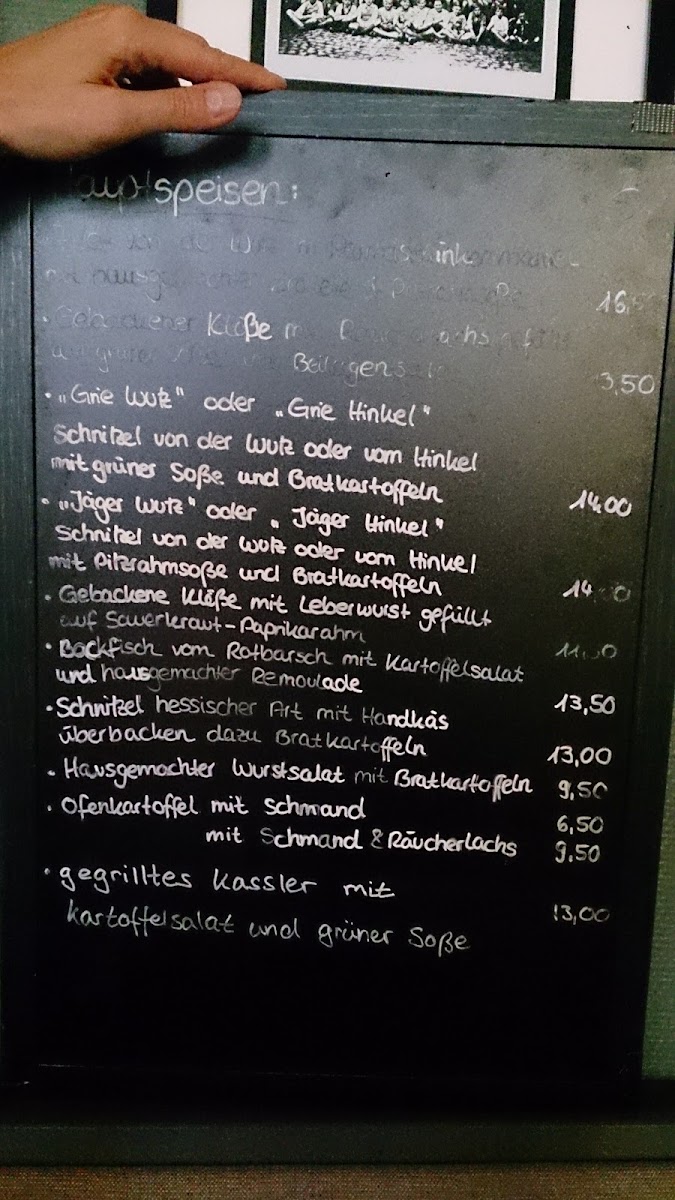 Hauptspeisen:
von der Wutz
mit
16,50
Gebackener Klöße
Beilagensalat
13,50
• „Grie Wutz" oder „Grie Hinkel"
Schnitzel von der Wutz oder vom Hinkel
mit grüner Soße und Bratkartoffeln
14,00
• „Jäger Wutz" oder „Jäger Hinkel"
Schnitzel von der Wutz oder vom Hinkel
mit Pilzrahmsoße und Bratkartoffeln
14,00
• Gebackene Klöße mit Leberwurst gefüllt
auf Sauerkraut-Paprikarahm
• Backfisch vom Rotbarsch mit Kartoffelsalat
und hausgemachter Remoulade
13,50
• Schnitzel hessischer Art mit Handkäs
überbacken dazu Bratkartoffeln
13,00
• Hausgemachter Wurstsalat mit Bratkartoffeln 9,50
• Ofenkartoffel mit Schmand 6,50
mit Schmand & Räucherlachs 9,50
• gegrilltes Kassler mit
13,00
Kartoffelsalat und grüner Soße